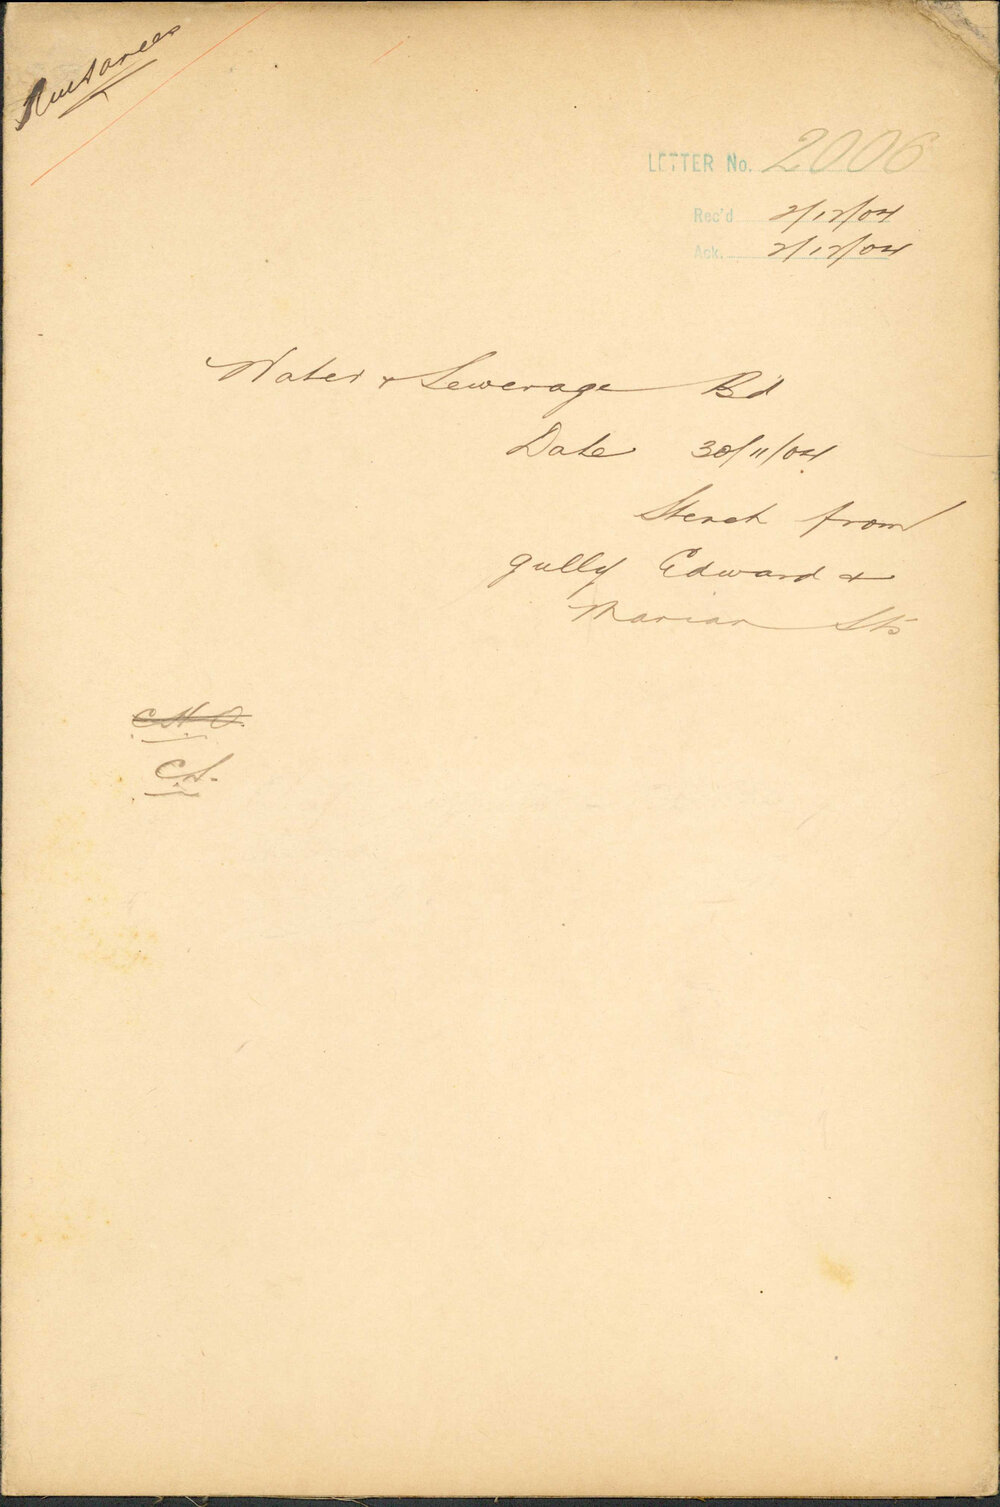 Nuisances
LETTER No. 2006
Rec'd 2/12/04
Ack. 2/12/04
Water & Sewerage Bd
Date 30/11/04
Stench from
gully Edward &
Marian Sts
C.H.O.
C.S.